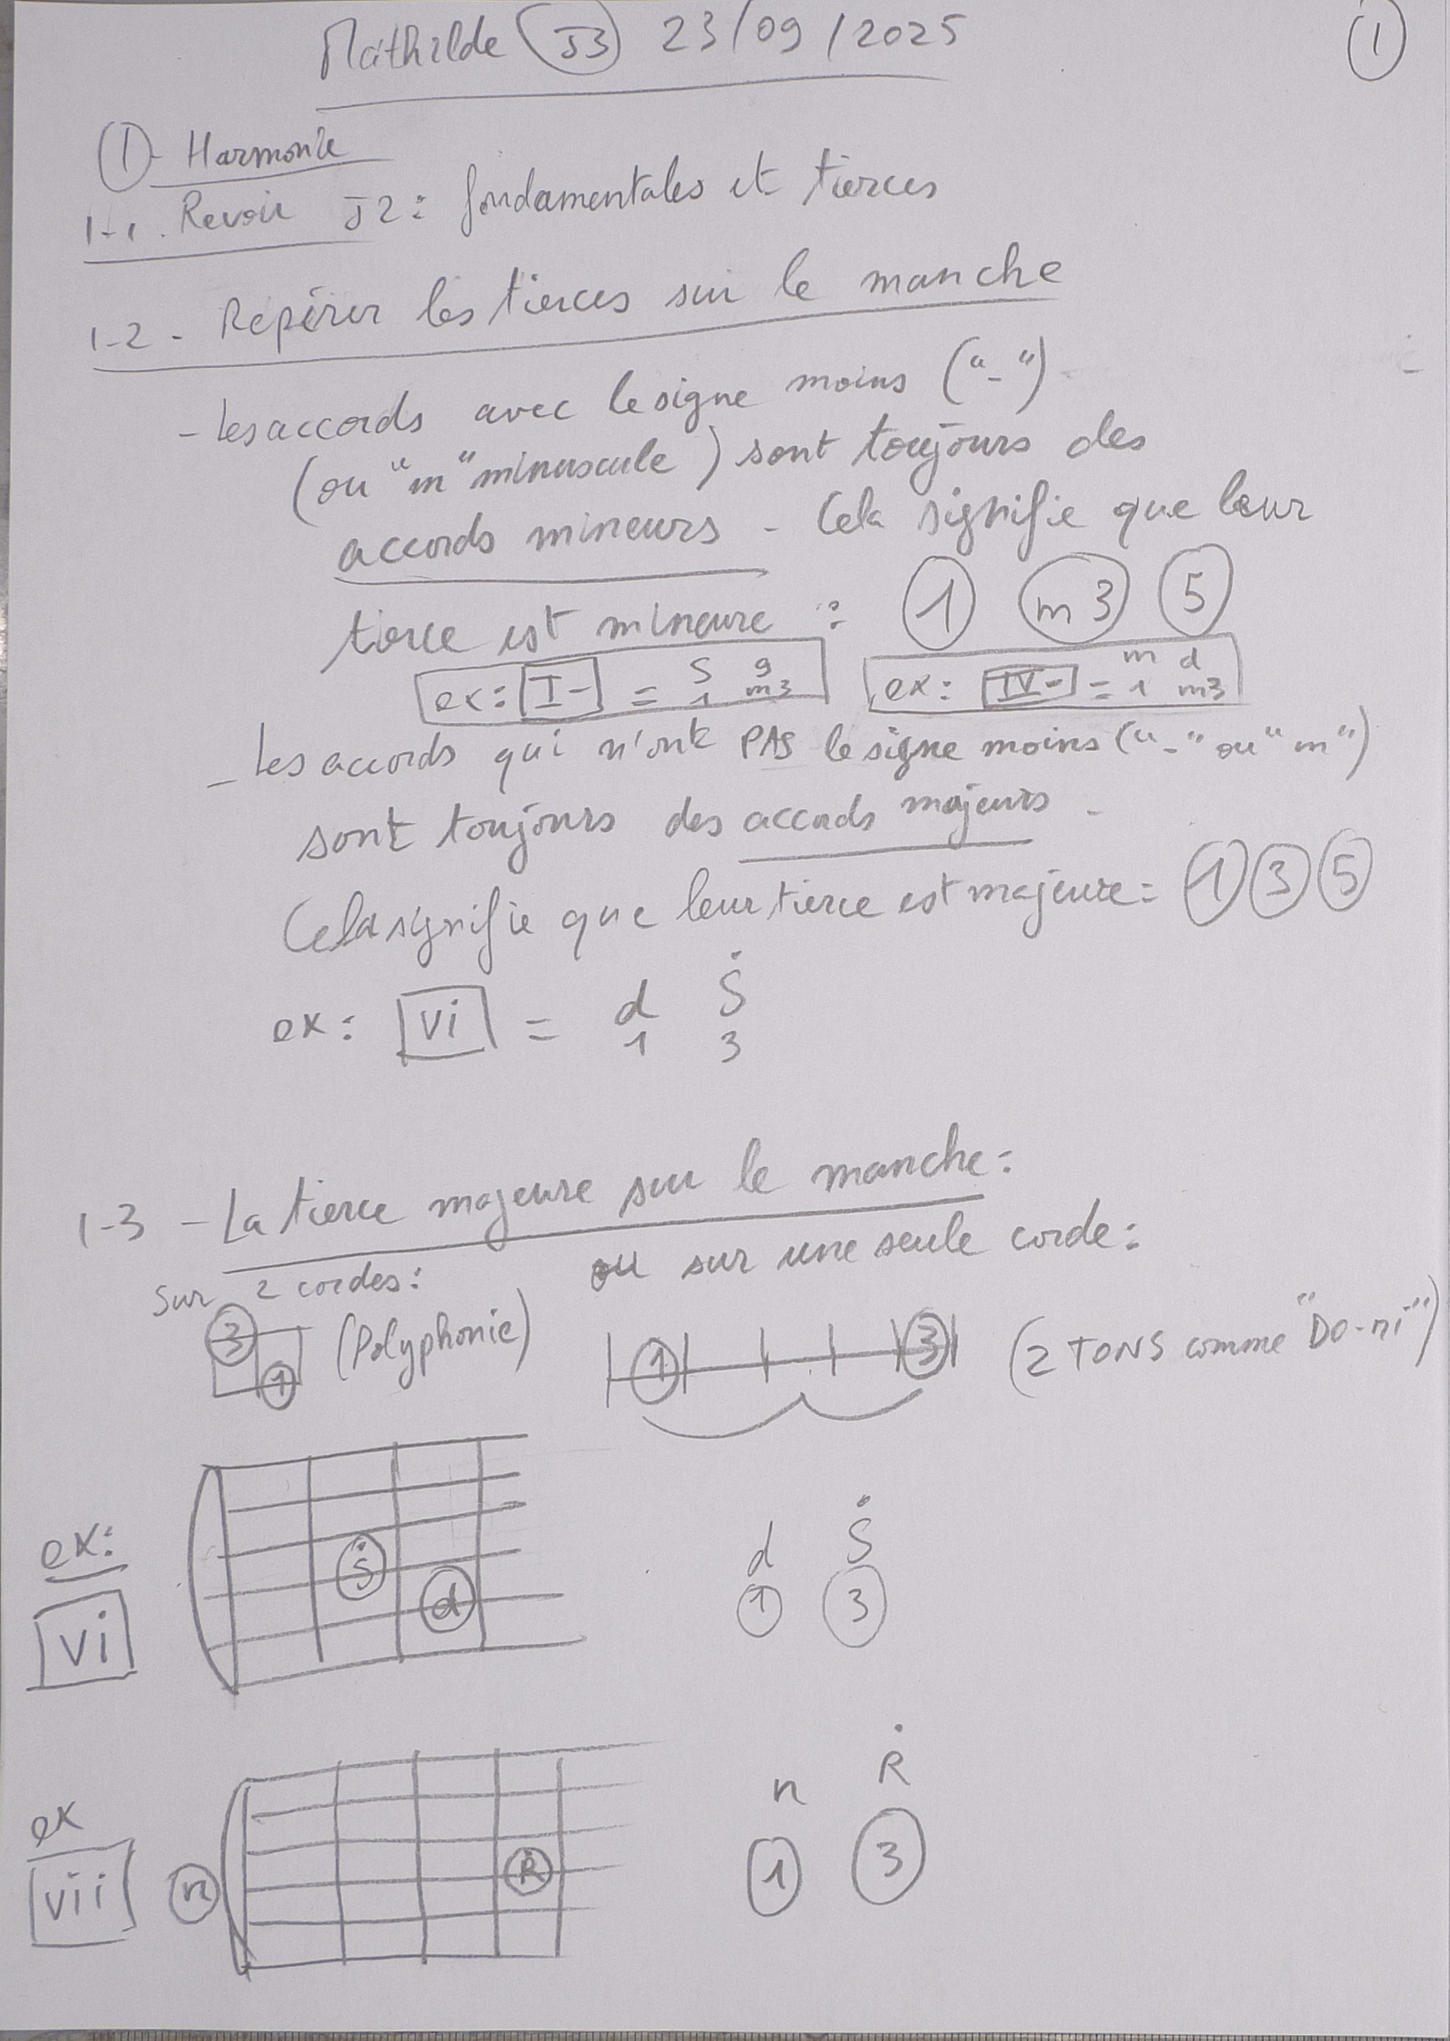 Mathilde J3 23/09/2025
1
1- Harmonie
1-1. Revoir J2: fondamentales et tierces
1-2- Repérer les tierces sur le manche
- Les accords avec le signe moins ("-")
(ou "m" minuscule) sont toujours des
accords mineurs - Cela signifie que leur
tierce est mineure : 1 m3 5
ex: I- = S g
1 m3
ex: IV- = m d
1 m3
- Les accords qui n'ont PAS le signe moins ("-" ou "m")
sont toujours des accords majeurs -
Cela signifie que leur tierce est majeure = 1 3 5
ex: vi = d Ṡ
1 3
1-3 - La tierce majeure sur le manche:
Sur 2 cordes:
ou sur une seule corde:
3
1
(Polyphonie)
1 3
(2 TONS comme "DO-mi")
ex:
vi
Ṡ
d
d Ṡ
1 3
ex
vii
n
Ṙ
n Ṙ
1 3